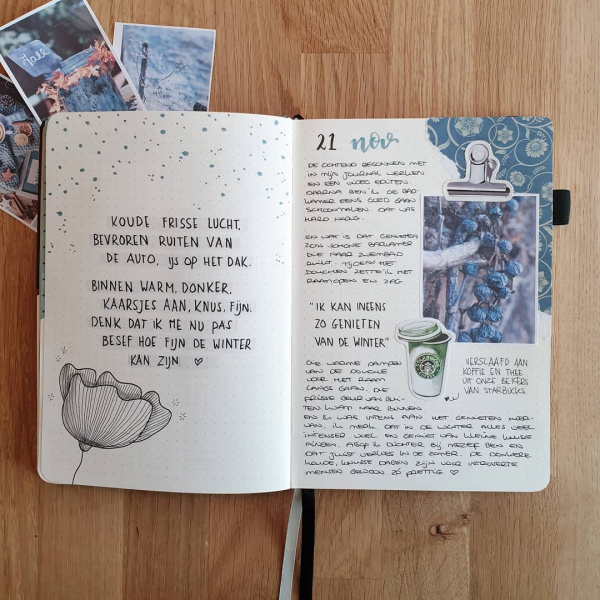 Fall
KOUDE FRISSE LUCHT,
BEVROREN RUITEN VAN
DE AUTO, IJS OP HET DAK.
BINNEN WARM, DONKER,
KAARSJES AAN, KNUS, FIJN.
DENK DAT IK ME NU PAS
BESEF HOE FIJN DE WINTER
KAN ZIJN ♡
21 nov
DE OCHTEND BEGONNEN MET
IN MIJN JOURNAL WERKEN
EN EEN VIDEO EDITEN.
DAARNA BEN IK DE BAD-
KAMER EENS GOED GAAN
SCHOONMAKEN. DAT WAS
HARD NODIG.
EN WAT IS DAT GENIETEN
ZO'N SCHONE BADKAMER
DIE NAAR ZWEMBAD
RUIKT. TIJDENS HET
DOUCHEN ZETTE IK HET
RAAM OPEN EN ZAG
"IK KAN INEENS
ZO GENIETEN
VAN DE WINTER"
DIE WARME DAMPEN
VAN DE DOUCHE
VOOR HET RAAM
LANGS GAAN. DIE
FRISSE GEUR VAN BUI-
TEN KWAM NAAR BINNEN
EN IK WAS INTENS AAN HET GENIETEN HIER-
VAN. IK MERK DAT IK DE WINTER ALLES VEEL
INTENSER VOEL EN GENIET VAN KLEINE KNUSSE
DINGEN. ALSOF IK DICHTER BIJ MEZELF BEN EN
DAT JUIST VERLIES IN DE ZOMER. DE DONKERE,
KOUDE, KNUSSE DAGEN ZIJN VOOR INTROVERTE
MENSEN GEWOON ZÓ PRETTIG ♡
VERSLAAFD AAN
KOFFIE EN THEE
UIT ONZE BEKERS
VAN STARBUCKS.